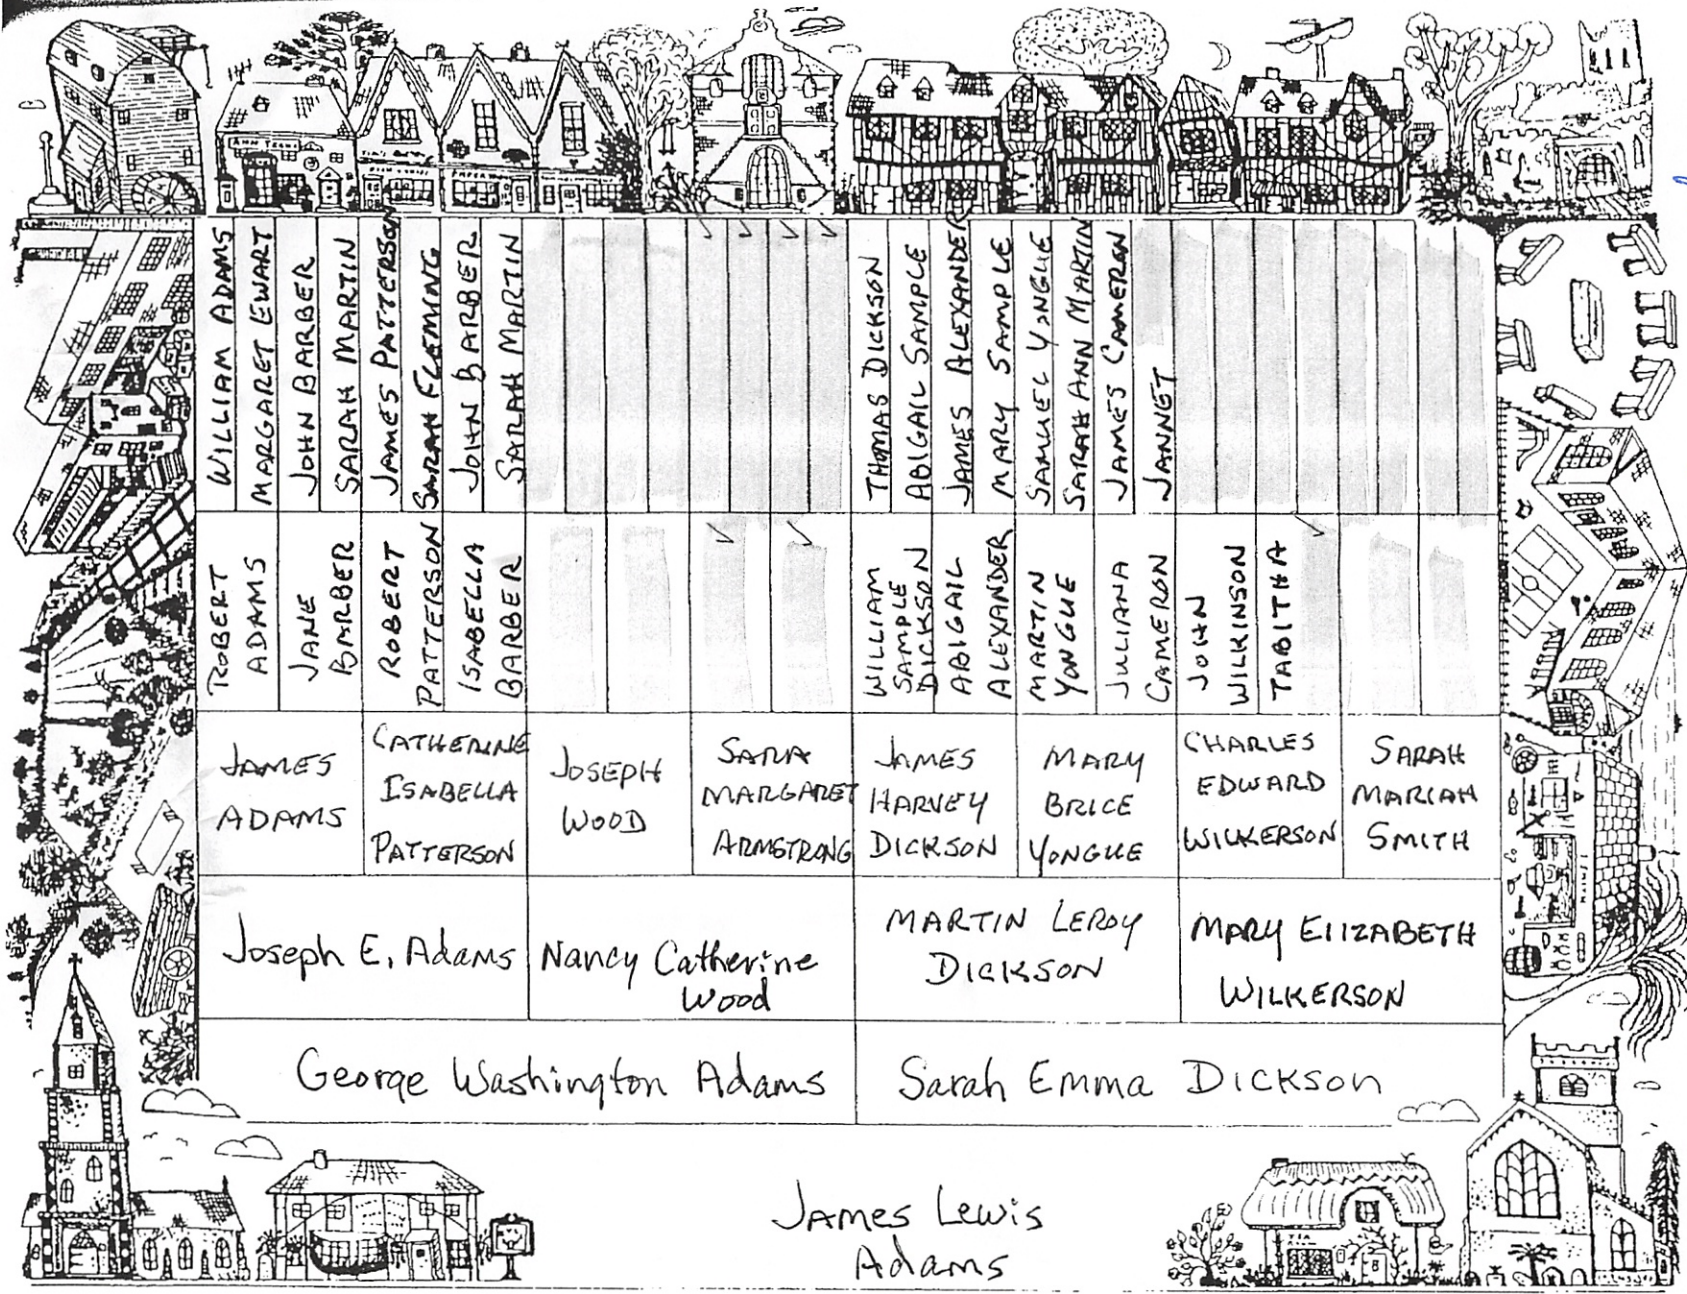 WILLIAM ADAMS
MARGARET EWART
JOHN BARBER
SARAH MARTIN
JAMES PATTERSON
SARAH FLEMING
JOHN BARBER
SARAH MARTIN
THOMAS DICKSON
ABIGAIL SAMPLE
JAMES ALEXANDER
MARY SAMPLE
SAMUEL YONGUE
SARAH ANN MARTIN
JAMES CAMERON
JANNET
ROBERT
ADAMS
JANE
BARBER
ROBERT
PATTERSON
ISABELLA
BARBER
WILLIAM
SAMPLE
DICKSON
ABIGAIL
ALEXANDER
MARTIN
YONGUE
JULIANA
CAMERON
JOHN
WILKINSON
TABITHA
JAMES
ADAMS
CATHERINE
ISABELLA
PATTERSON
JOSEPH
WOOD
SARA
MARGARET
ARMSTRONG
JAMES
HARVEY
DICKSON
MARY
BRICE
YONGUE
CHARLES
EDWARD
WILKERSON
SARAH
MARIAH
SMITH
Joseph E. Adams
Nancy Catherine
Wood
MARTIN LEROY
DICKSON
MARY ElIZABETH
WILKERSON
George Washington Adams
Sarah Emma DICKSON
James Lewis
Adams